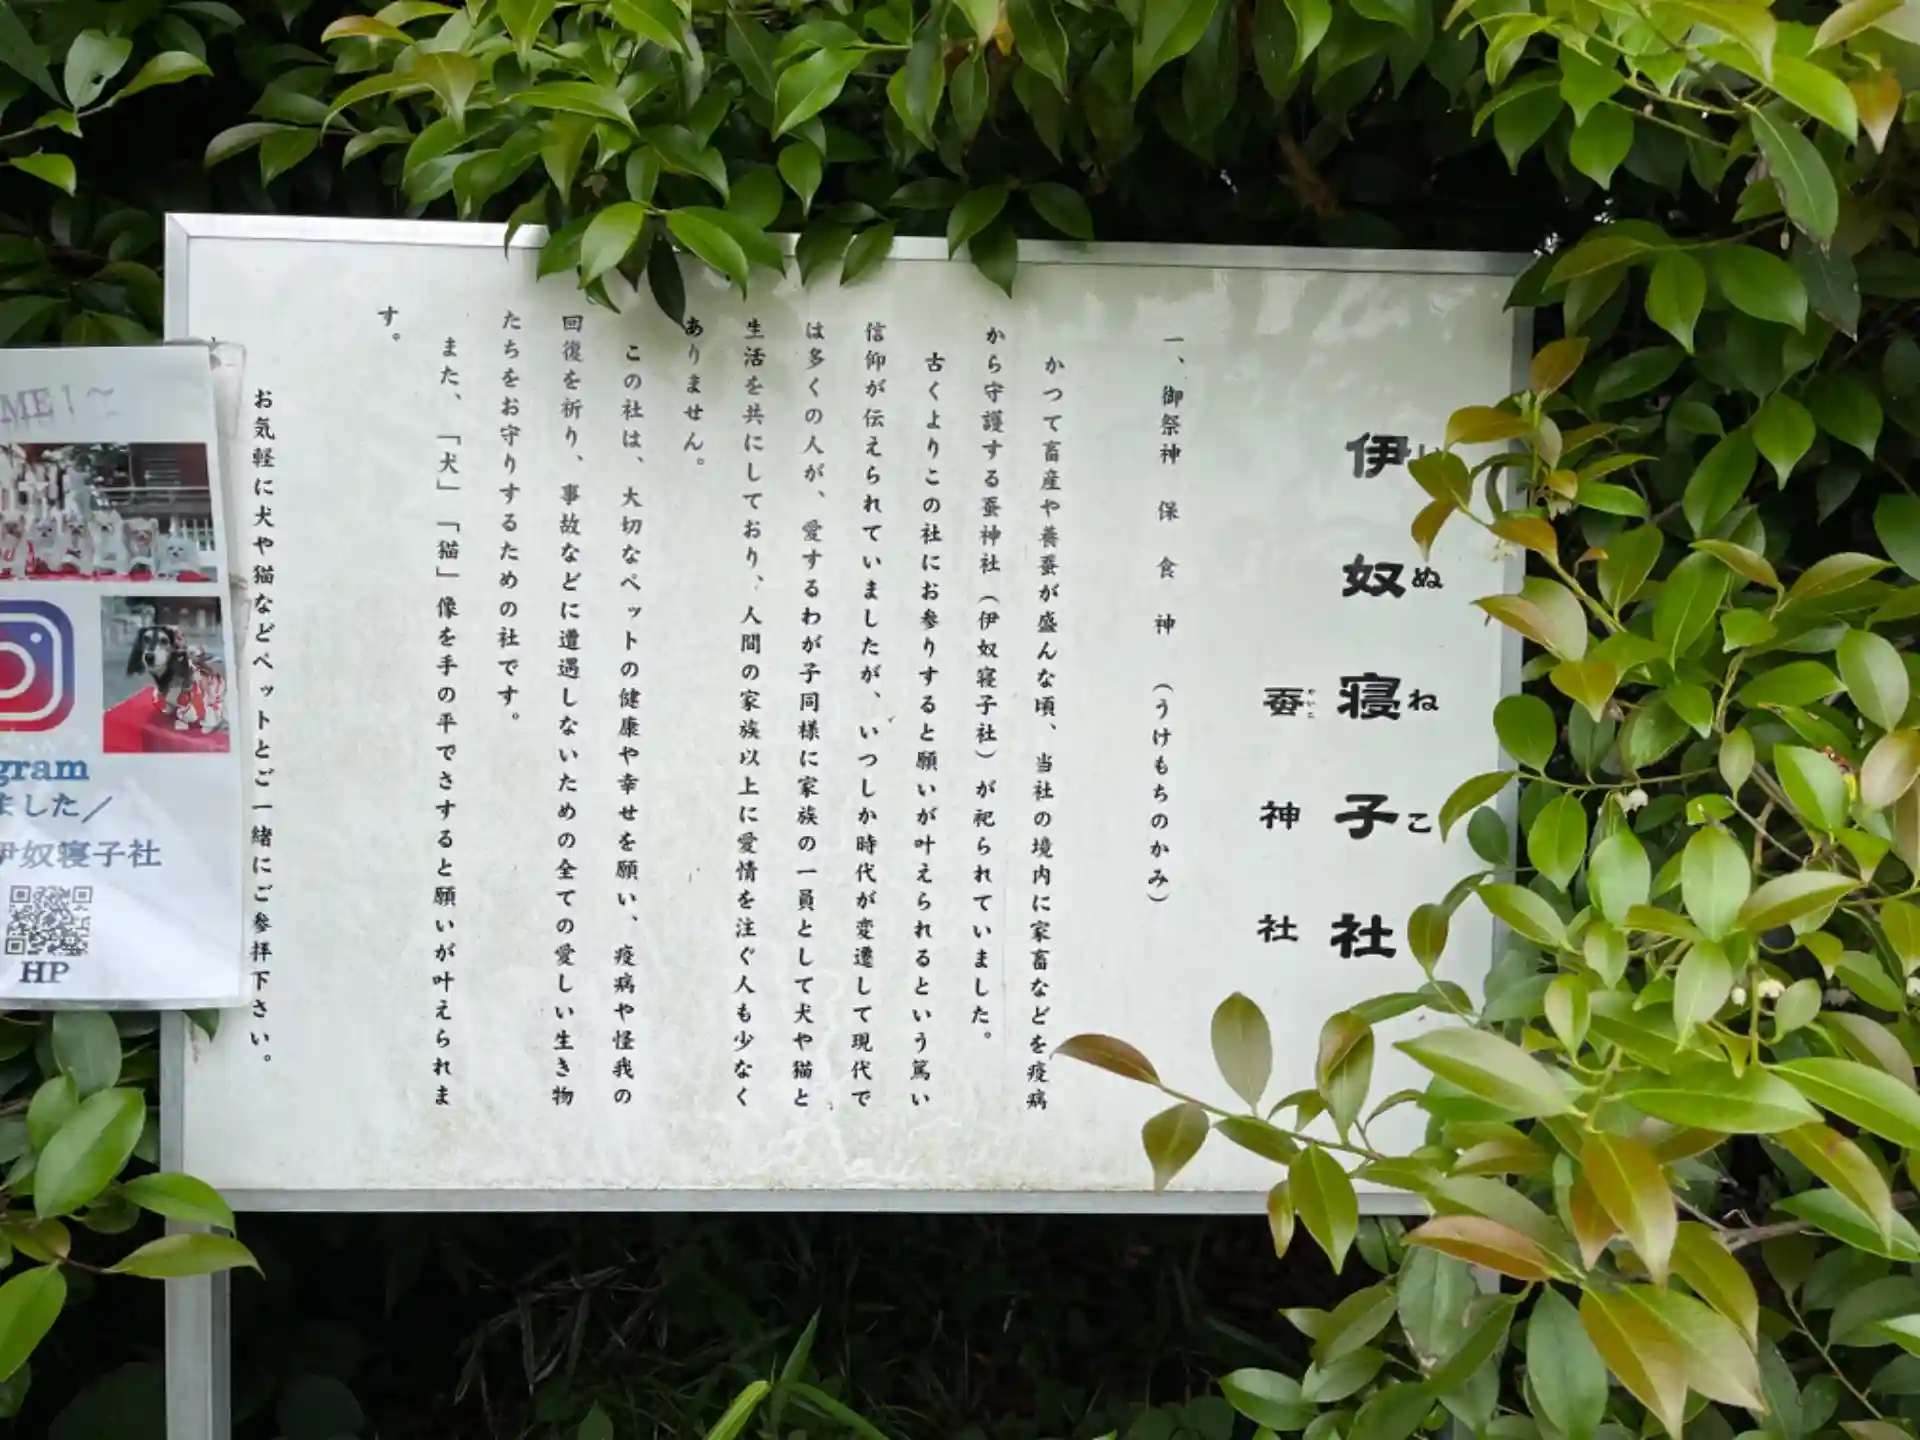 伊奴寝子社
ぬねこ
蚕神社
かいこ
一、御祭神 保食神 (うけもちのかみ)
かつて畜産や養蚕が盛んな頃、当社の境内に家畜などを疫病
から守護する蚕神社(伊奴寝子社)が祀られていました。
古くよりこの社にお参りすると願いが叶えられるという篤い
信仰が伝えられていましたが、いつしか時代が変遷して現代で
は多くの人が、愛するわが子同様に家族の一員として犬や猫と
生活を共にしており、人間の家族以上に愛情を注ぐ人も少なく
ありません。
この社は、大切なペットの健康や幸せを願い、疫病や怪我の
回復を祈り、事故などに遭遇しないための全ての愛しい生き物
たちをお守りするための社です。
また、「犬」「猫」像を手の平でさすると願いが叶えられま
す。
お気軽に犬や猫などペットとご一緒にご参拝下さい。
ME!~
gram
ました/
伊奴寝子社
HP